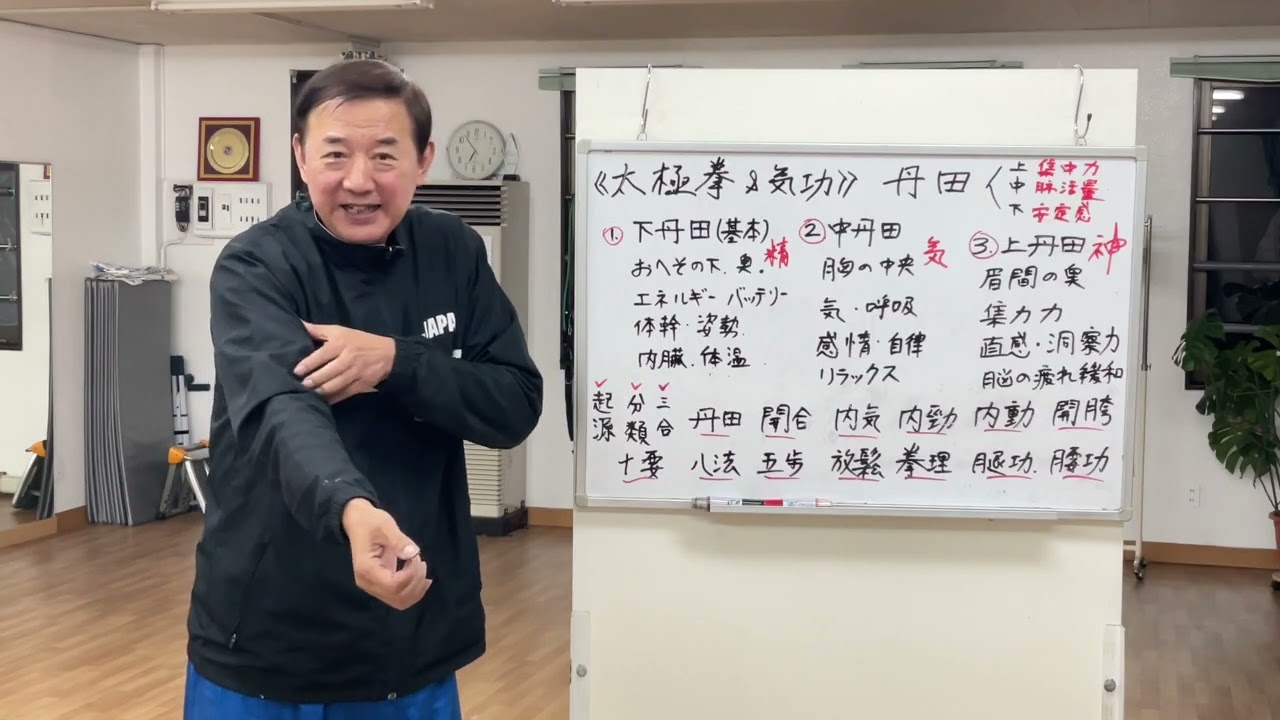 JAPA
《太極拳&気功》 丹田〈
上 集中力
中 肺活量
下 安定感
① 下丹田(基本) 精
おへその下.奥。
エネルギーバッテリー
体幹・姿勢.
内臓.体温
② 中丹田 気
胸の中央
気・呼吸
感情・自律
リラックス
③.上丹田 神
眉間の奥
集力力
直感・洞察力
脳の疲れ緩和
起源 分類 三合 丹田 開合 内気 内勁 内動 開胯
十要 八法 五歩 放鬆 拳理 腿功. 腰功